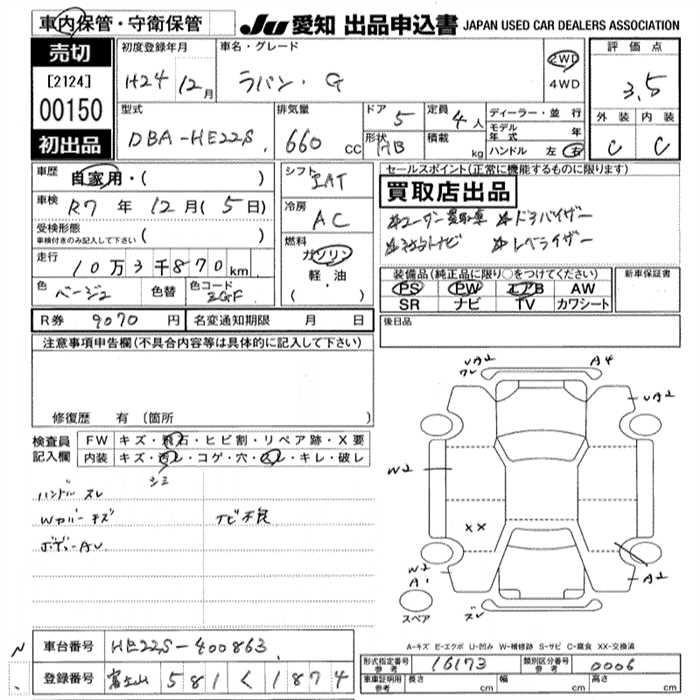 車内保管・守衛保管
JU 愛知 出品申込書 JAPAN USED CAR DEALERS ASSOCIATION
売切
[2124]
00150
初出品
初度登録年月 H24 12月
車名・グレード ラパン・G
2WD
4WD
評価点 3.5
外装 内装
C C
型式 DBA-HE22S
排気量 660 cc
ドア 5
形状 HB
定員 4人
積載 kg
ディーラー・並行
モデル年式 年
ハンドル 左 右
車歴 自家用・( )
車検 R7年 12月(5日)
受検形態
車検付きのみ記入して下さい ( )
走行 10万3千870km
色 ベージュ 色替 色コード ZGF
シフト IAT
冷房 AC
燃料 ガソリン
軽・油
( ・ )
セールスポイント(正常に機能するものに限ります)
買取店出品
*ユーザー買取車 *ドラバイザー
*社外ナビ *レベライザー
装備品(純正品に限り○をつけてください)
PS PW エアB AW
SR ナビ TV カワシート
新車保証書
後日品
R券 9070円 名変通知期限 月 日
注意事項申告欄(不具合内容等は具体的に記入して下さい)
修復歴 有(箇所 )
検査員記入欄
FW キズ・飛石・ヒビ割・リペア跡・X要
内装 キズ・汚レ・コゲ・穴・スレ・キレ・破レ
シミ
ハンドル スレ
Wカバー キズ ナビ不良
ボディーAU
UA2 A4
スレ
UA2
W2
XX
W2
A1
A2
スレ
スペア
A-キズ E-エクボ U-凹み W-補修跡 S-サビ C-腐食 XX-交換済
車台番号 HE22S-400863
登録番号 富士山 581 く 1874
形式指定番号 参考 16173 類別区分番号 参考 0006
車庫証明用 参考 長さ cm 幅 cm 高さ cm